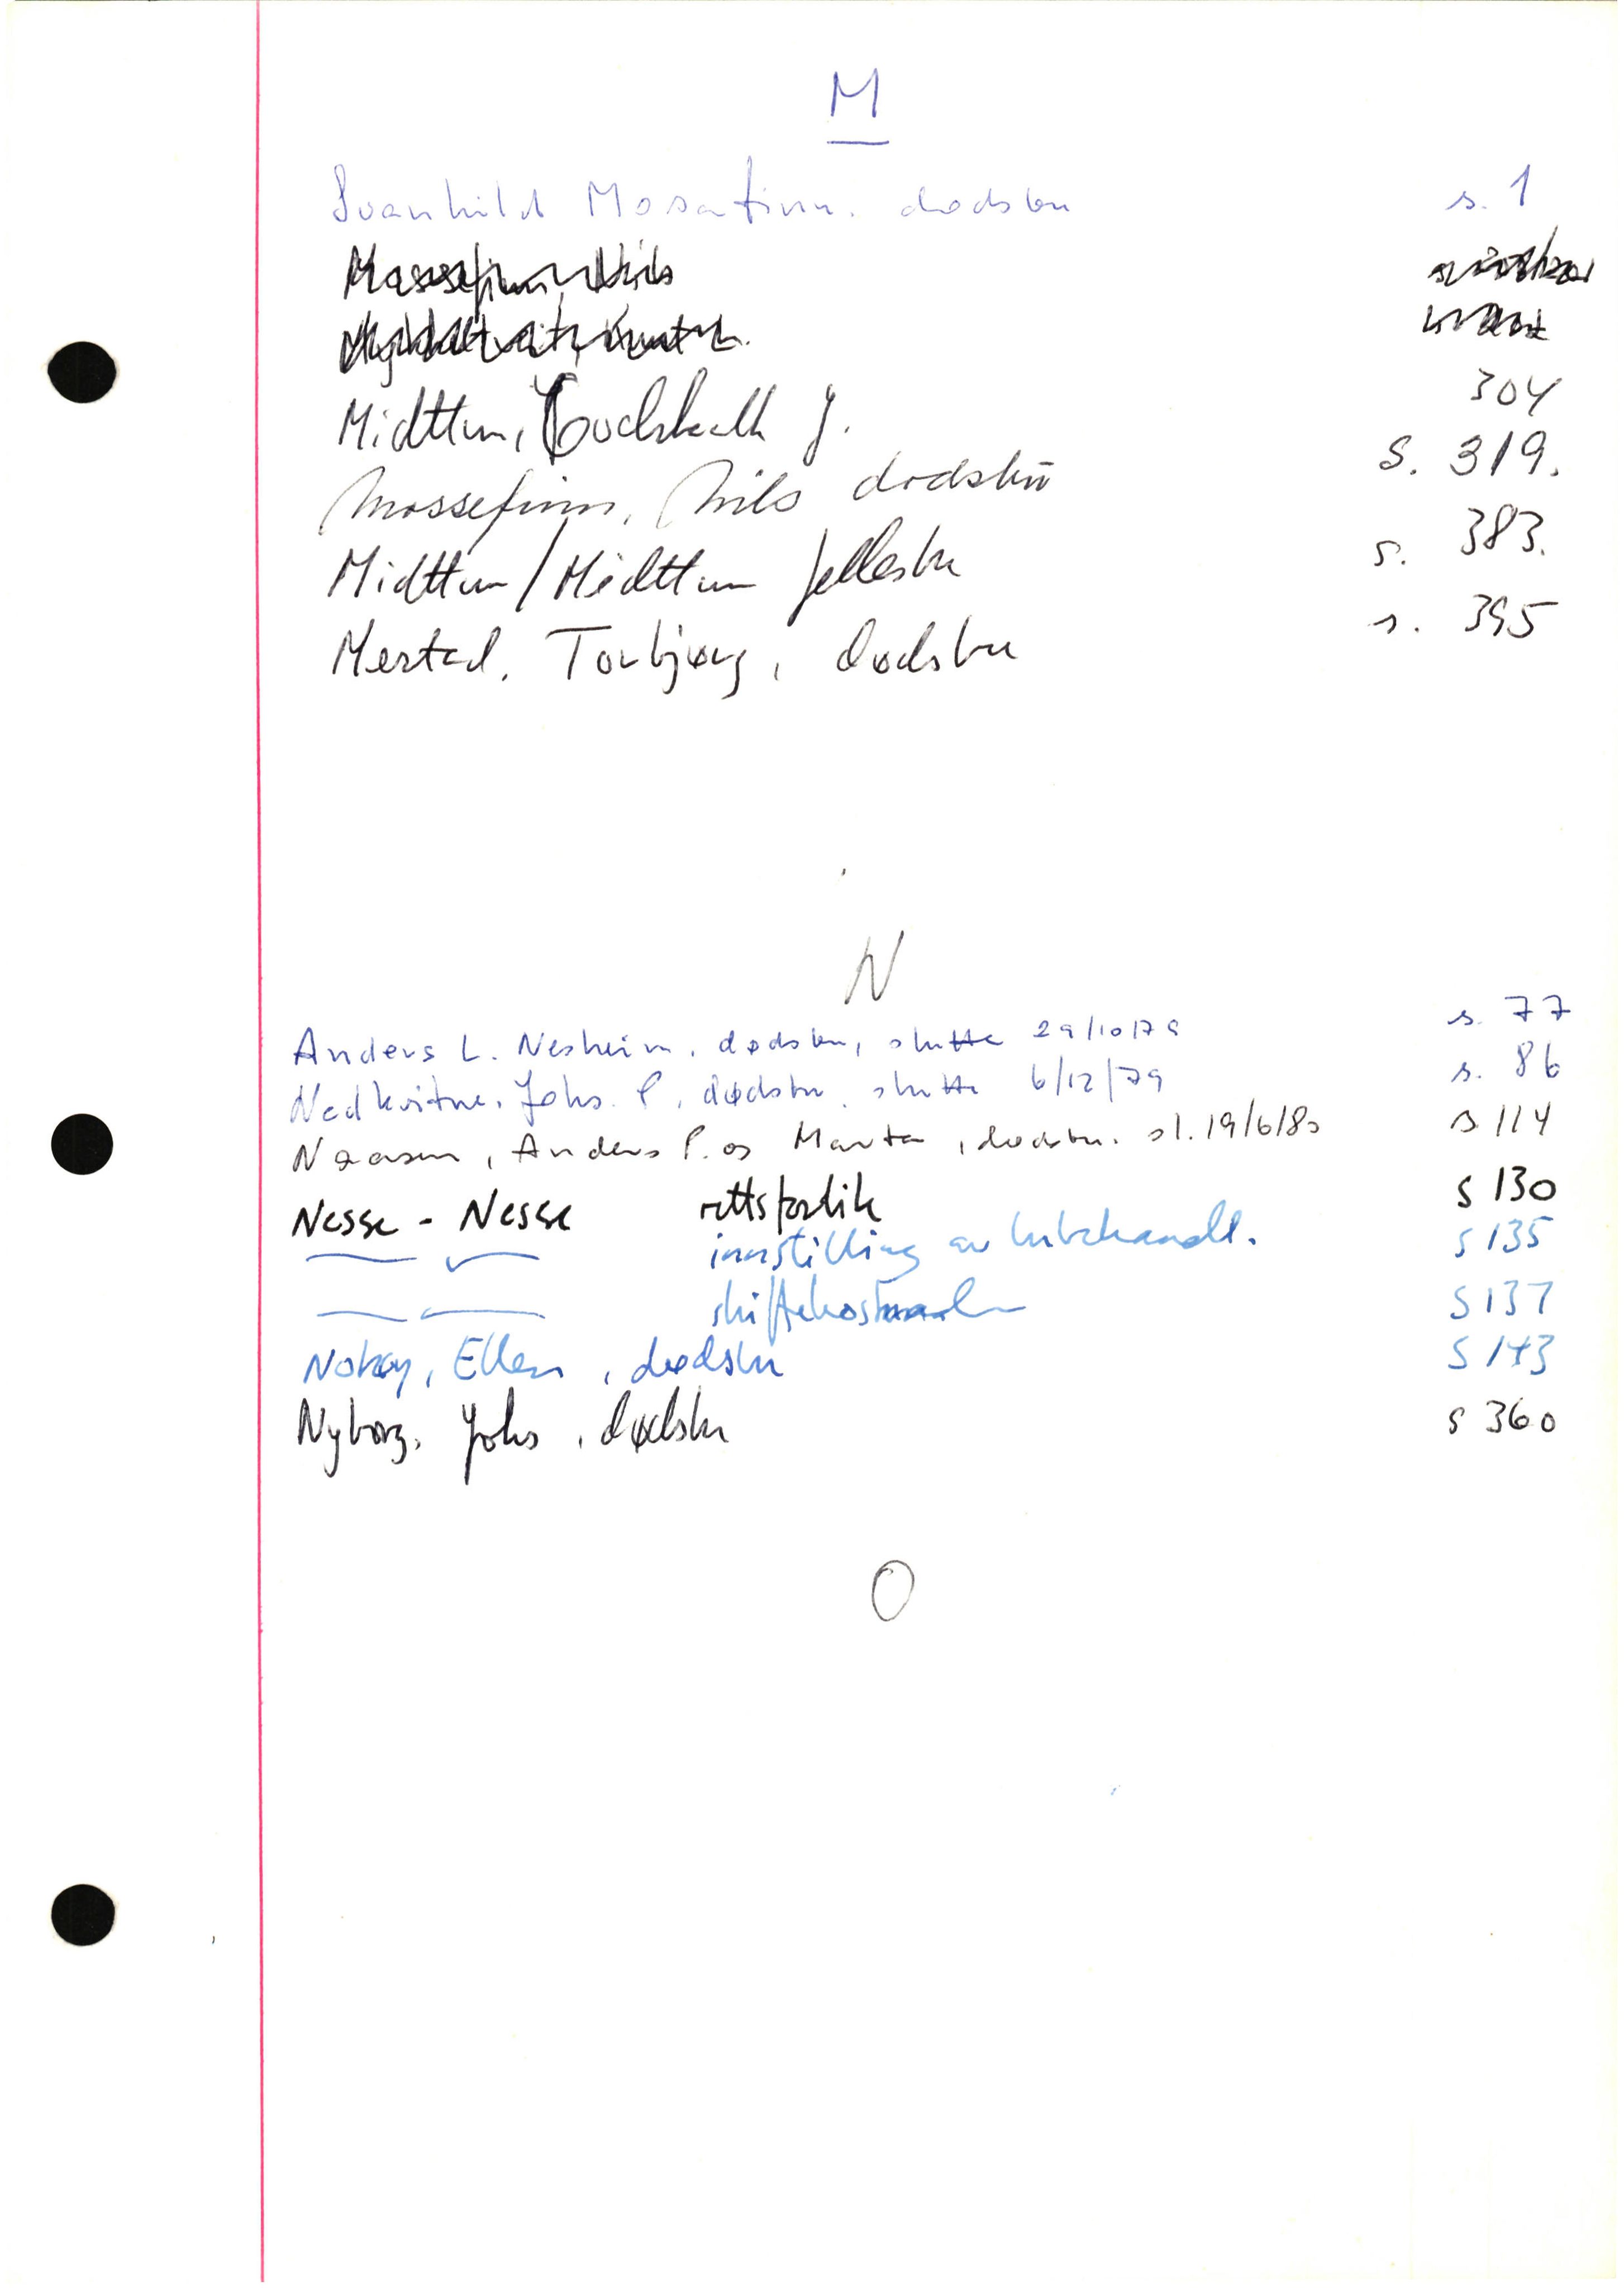 M
Svanhild Mosafinn. dødsbu s. 1
Massefinn, Nils
Midttun, Godskalk J. 304
Mossefinn, Nils dødsbu s. 319.
Midttun / Midttun fellesbu s. 383.
Mestad, Torbjørg, dødsbu s. 395
N
Anders L. Nesheim, dødsbu, slutta 29/10/79 s. 77
Nedkvitne, Johs. P, dødsbu, slutta 6/12/79 s. 86
Anders P. og Marta, dødsbu. sl. 19/6/80 s 114
Nesse - Nesse rettsforlik s 130
innstilling av bubehandl. s 135
s 137
Ellen, dødsbu s 143
Nyborg, Johs, dødsbu s 360
O